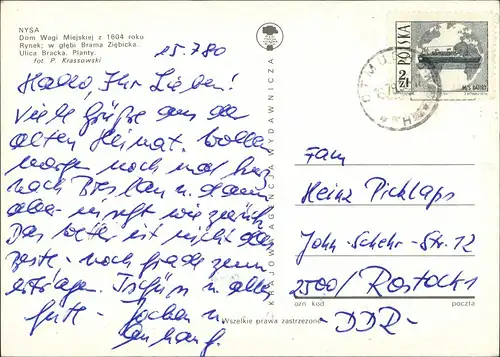 NYSA
Dom Wagi Miejskiej z 1604 roku
Rynek; w głębi Brama Ziębicka.
Ulica Bracka. Planty.
fot. P. Krassowski
15.7.80
Hallo, Ihr Lieben!
Viele Grüße aus der
alten Heimat. Wollen
morgen noch mal kurz
nach Breslau u. dann
aber wieder zurück.
Das Wetter ist nicht das
beste - noch grade zum
ertragen. Tschüß u. alles
Gute - Jochen u.
KRAJOWA AGENCJA WYDAWNICZA
POLSKA
2 ZŁ
OTMU
Fam
Heinz Picklaps
John-Schehr-Str. 12
2500/ Rostock 1
kod
poczta
-DDR-
Wszelkie prawa zastrzeżone